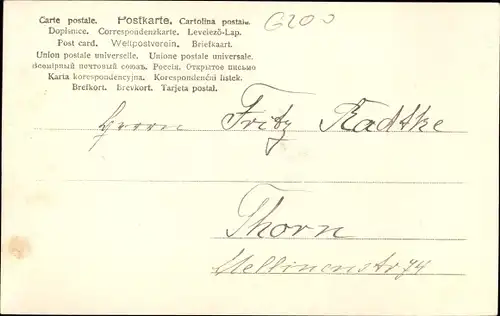 Carte postale. Postkarte. Cartolina postale. G200
Dopisnice. Correspondenzkarte. Levelező-Lap.
Post card. Weltpostverein. Briefkaart.
Union postale universelle. Unione postale universale.
Всемірный почтовый союзъ. Россія. Открытое письмо
Karta korespondencyjna. Korespondenční lístek.
Brefkort. Brevkort. Tarjeta postal.
Herrn Fritz Radtke
Thorn
Mellinenstr 74